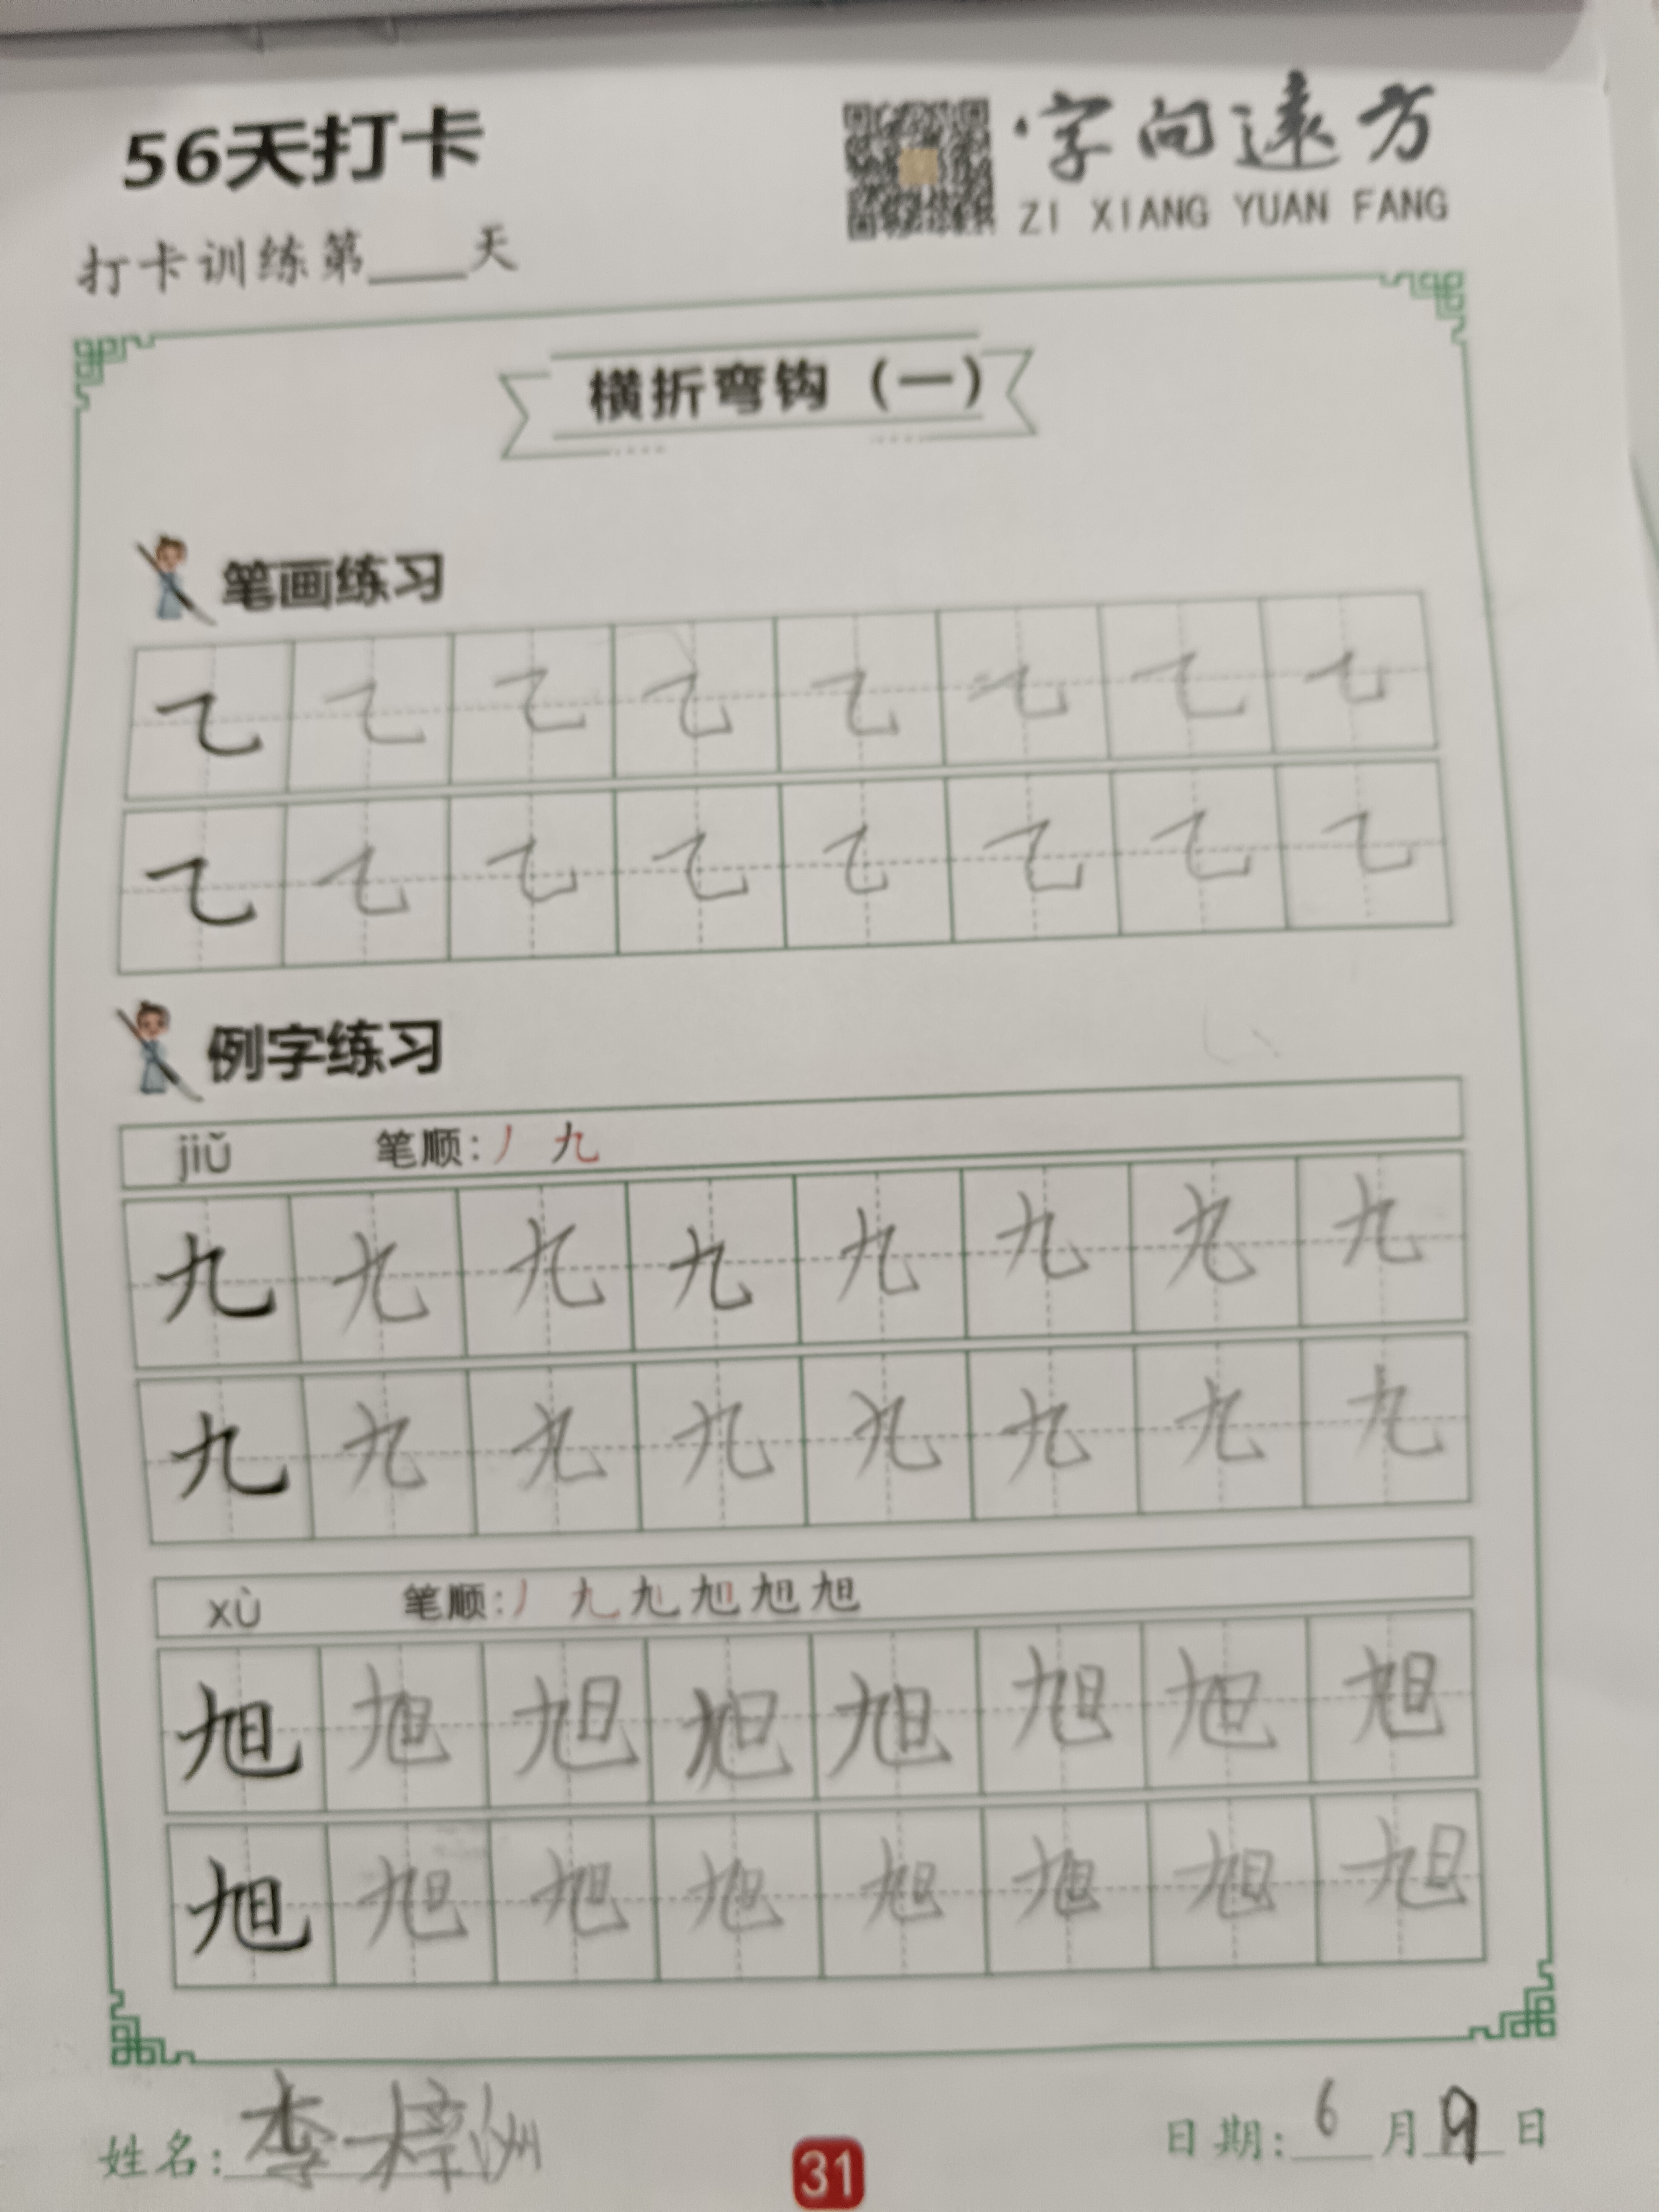 56天打卡
·字向遠方
ZI XIANG YUAN FANG
打卡训练第____天
横折弯钩（一）
笔画练习
㇈ ㇈ ㇈ ㇈ ㇈ ㇈ ㇈ ㇈
㇈ ㇈ ㇈ ㇈ ㇈ ㇈ ㇈ ㇈
例字练习
jiǔ 笔顺：丿 九
九 九 九 九 九 九 九 九
九 九 九 九 九 九 九 九
xù 笔顺：丿 九 旭 旭 旭 旭
旭 旭 旭 旭 旭 旭 旭 旭
旭 旭 旭 旭 旭 旭 旭 旭
姓名：李梓洲
31
日期：6月9日